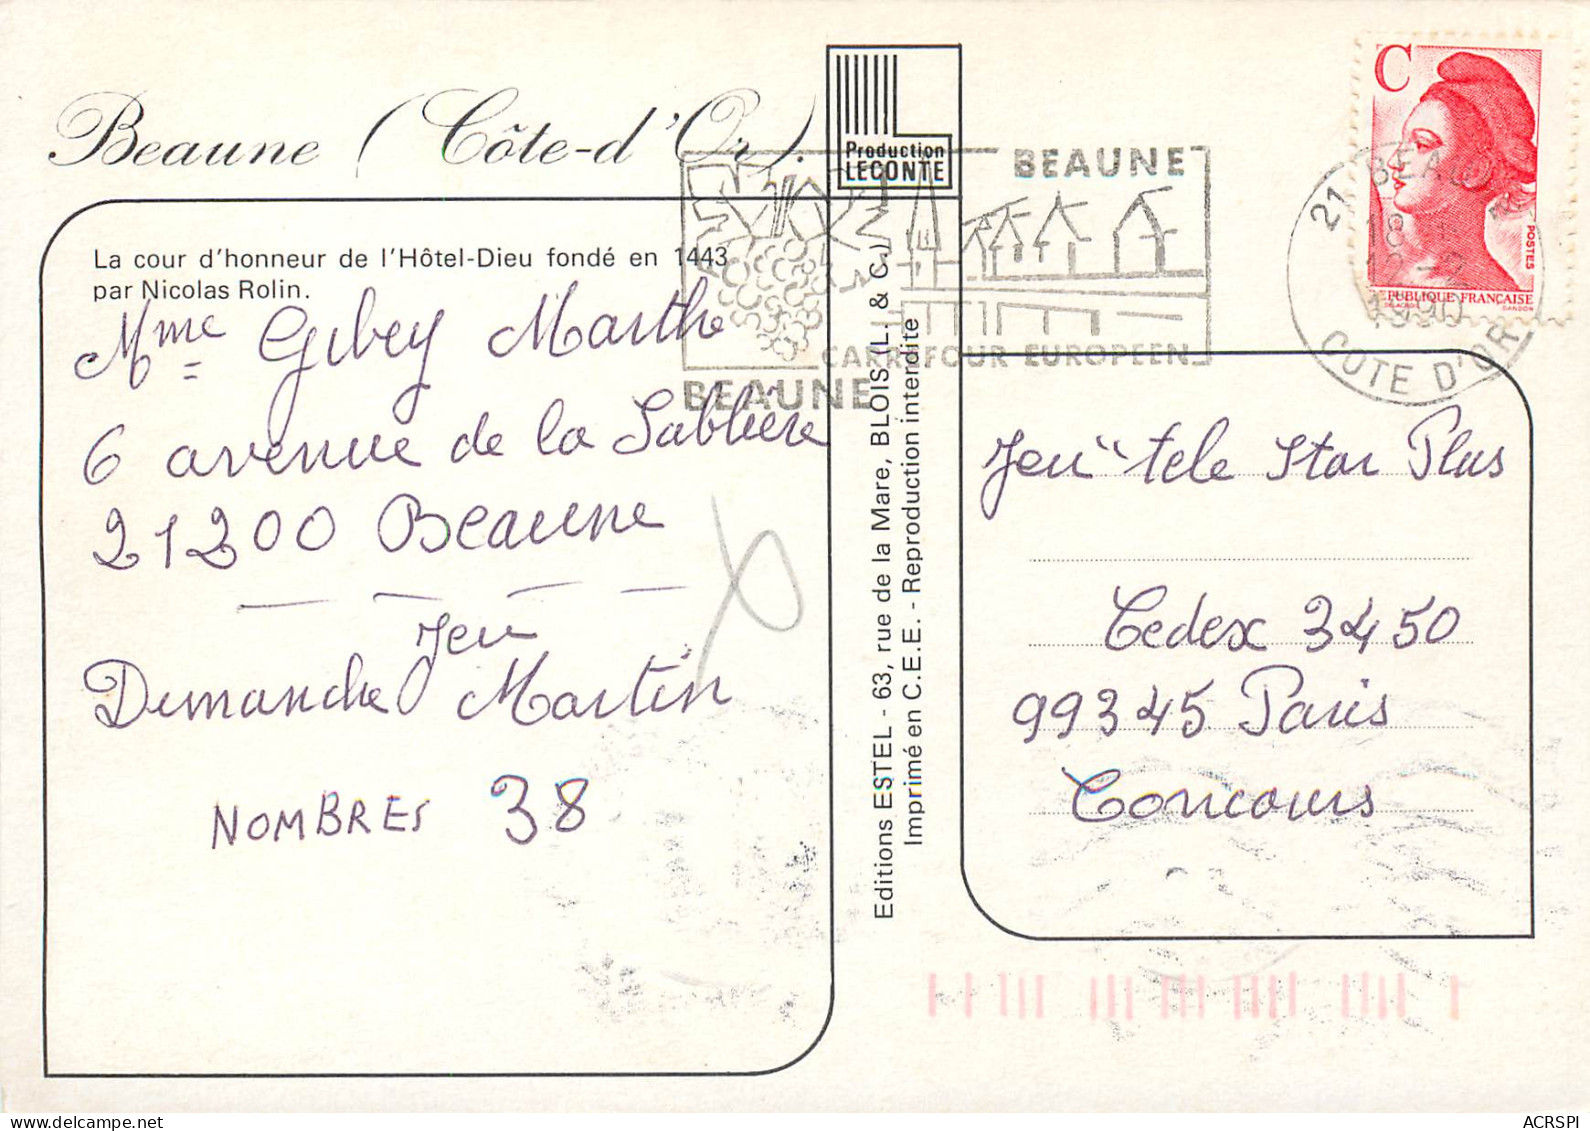 Beaune (Côte-d'Or).
La cour d'honneur de l'Hôtel-Dieu fondé en 1443
par Nicolas Rolin.
Mme Gibey Marthe
6 avenue de la Sablière
21200 Beaune
Jeu
Dimanche Martin
NOMBRES 38
Production
LECONTE
BEAUNE
CARREFOUR EUROPEEN
BEAUNE
Editions ESTEL - 63, rue de la Mare, BLOIS (L. & C.)
Imprimé en C.E.E. - Reproduction interdite
C
POSTES
REPUBLIQUE FRANÇAISE
GANDON
21 BEAUNE
18
12-2
1990
COTE D'OR
Jeu "tele Star Plus
Cedex 3450
99345 Paris
Concours
ACRSPI